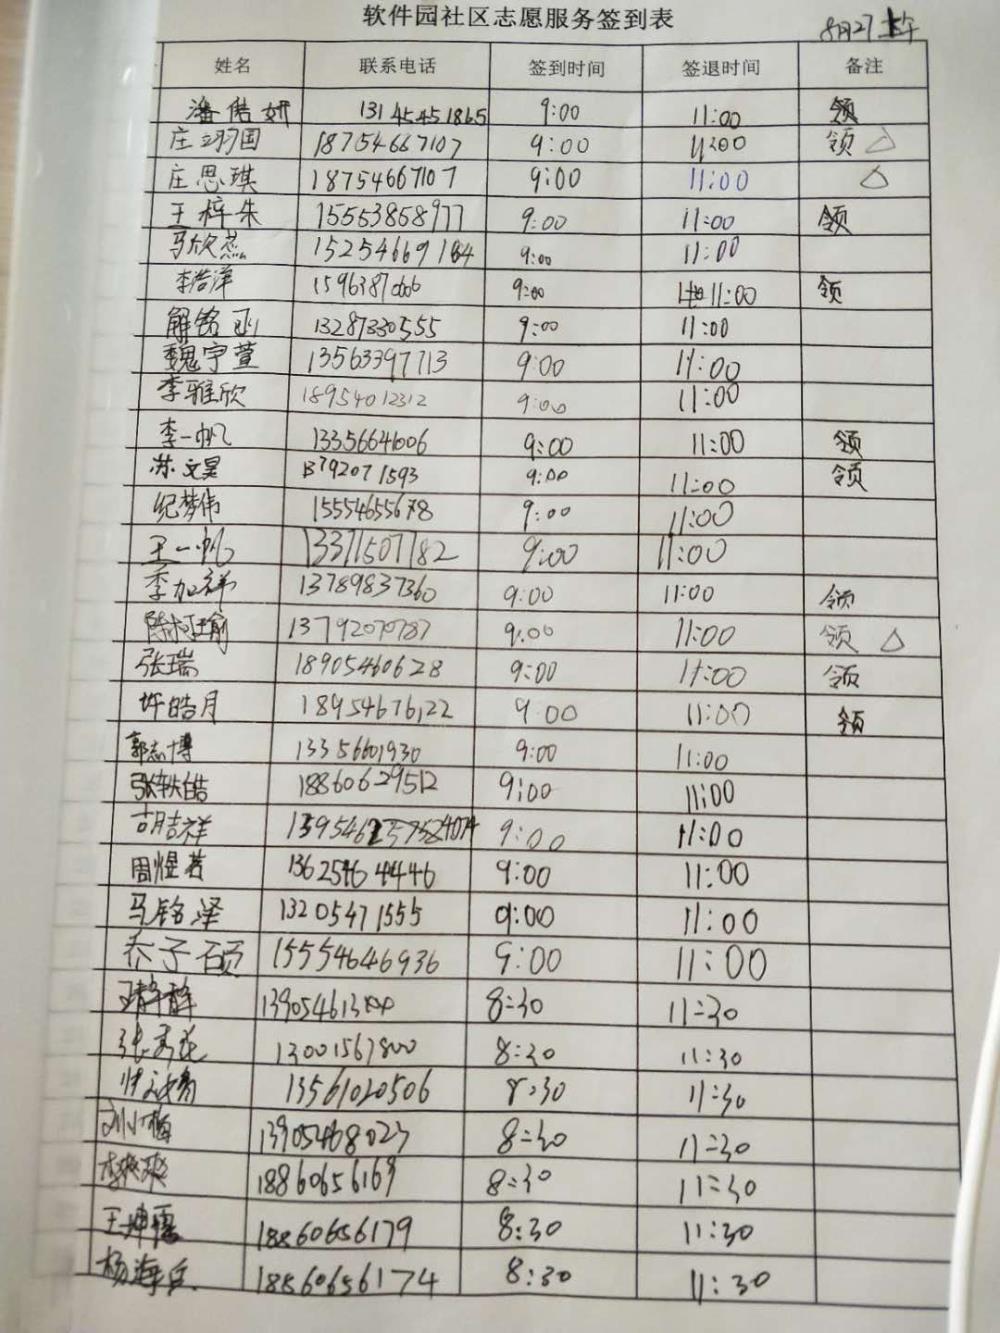 软件园社区志愿服务签到表
8月27上午
姓名 联系电话 签到时间 签退时间 备注
潘偌妍 13145451865 9:00 11:00 领
庄翊国 18754667107 9:00 11:00 领 △
庄思琪 18754667107 9:00 11:00 △
王梓朱 15553858977 9:00 11:00 领
马欣燕 15254669164 9:00 11:00
李浩泽 9:00 11:00 领
解铭 13287330555 9:00 11:00
魏宇萱 13563397713 9:00 11:00
李雅欣 18954012312 9:00 11:00
李一帆 13356641606 9:00 11:00 领
苏文昊 13792071593 9:00 11:00 领
纪梦伟 15554655678 9:00 11:00
王一帆 13371507782 9:00 11:00
季加祥 13789837360 9:00 11:00 领
陈柯瑜 13792070787 9:00 11:00 领 △
张瑞 18905460628 9:00 11:00 领
许皓月 18954676122 9:00 11:00 领
郭志博 13356601930 9:00 11:00
张轶皓 18860629512 9:00 11:00
胡吉祥 9:00 11:00
周煜若 13625464446 9:00 11:00
马铭泽 13205471555 9:00 11:00
乔子硕 15554646936 9:00 11:00
8:30 11:30
张秀花 13001567800 8:30 11:30
13561020506 8:30 11:30
刘小梅 13905468023 8:30 11:30
李爽爽 18860656169 8:30 11:30
王坤儒 18860656179 8:30 11:30
杨海兵 18860656174 8:30 11:30